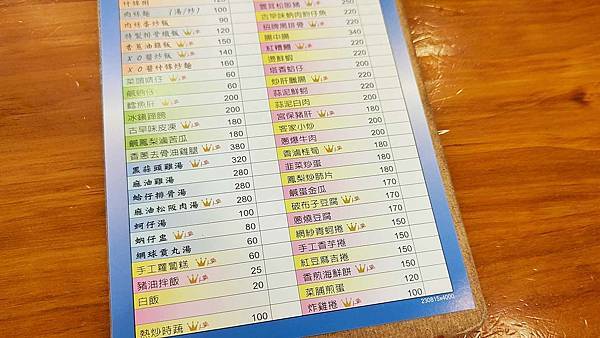 什錦粥 120
肉絲麵 (湯/炒) 100
肉絲蛋炒飯 90
特製排骨燒飯 120
香蔥油雞飯 150
XO醬炒飯 140
XO醬什錦炒麵 160
菜脯蜻仔 60
鹹蜆仔 60
鱈魚肝 200
冰鎮蹄膀 200
古早味皮凍 180
鹹鳳梨滷苦瓜 180
香蔥去骨油雞腿 380
黑蒜頭雞湯 320
麻油雞湯 280
蛤仔排骨湯 280
麻油松阪肉湯 280
蚵仔湯 100
蚋仔盅 80
網球貢丸湯 60
手工蘿蔔糕 60
豬油拌飯 25
白飯 20
熱炒時蔬 100
雲耳松阪豬 250
古早味蚋肉粉仔魚 220
招牌黑排骨 220
腸中腸 340
紅糟鰻 220
燙鮮蝦 220
塔香蛤仔 220
炒肝麗腸 200
蒜泥鮮蚵 200
蒜泥白肉 200
宮保豬肝 180
客家小炒 200
蔥爆牛肉 200
香滷桂筍 180
韭菜炒蛋 180
鳳梨炒肺片 180
鹹蛋金瓜 170
破布子豆腐 170
蔥燒豆腐 150
網紗青蚵捲 150
手工香芋捲 150
紅豆麻吉捲 150
香煎海鮮餅 150
菜脯煎蛋 150
炸雞捲 100
230815x4000